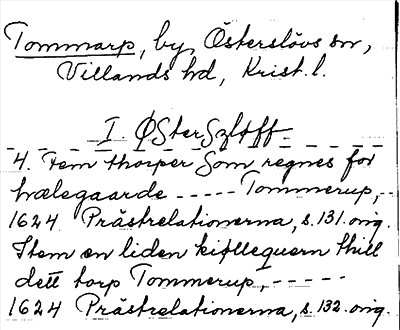 Tommarp, by, Österslövs sn,
Villands hd, Krist. l.
I. ØSterSzlöff
4. Fem thorper Som regnes for
hælegaarde ----- Tommerup,--
1624 Prästrelationerna, s. 131. orig.
Item en liden kiel till
dett torp Tommerup, -----
1624 Prästrelationerna, s. 132. orig.